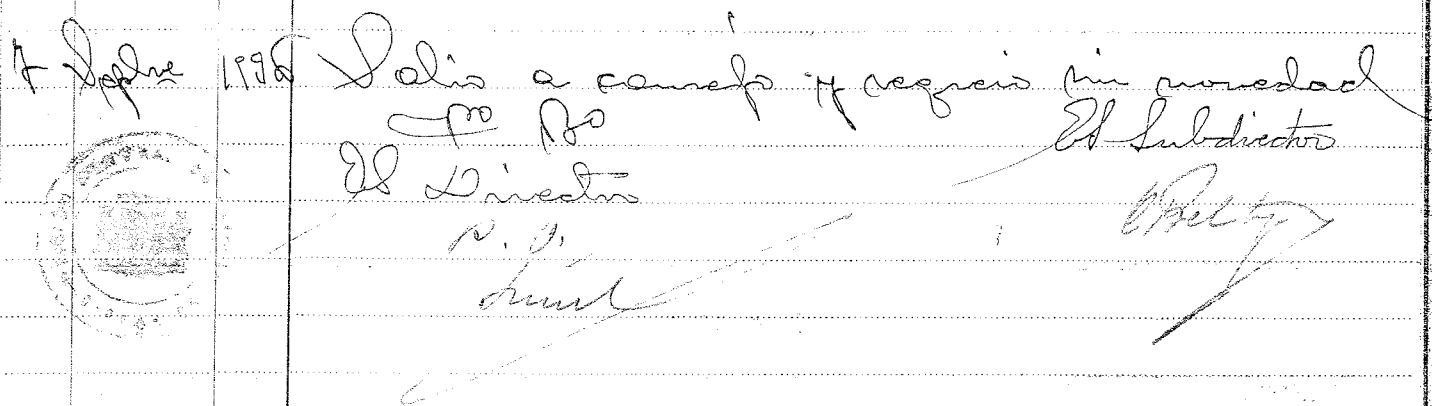 7 Sepbre 1936 Salio a consejo y regreso sin novedad
Vo Bo El Subdirector
El Director
P. O.